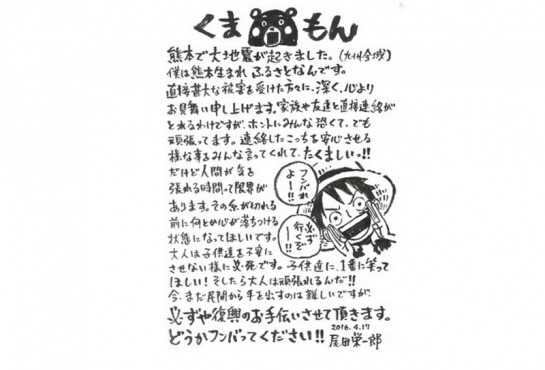 くまもん
熊本で大地震が起きました。(九州全域)
僕は熊本生まれ ふるさとなんです。
直接甚大な被害を受けた方々に、深く、心より
お見舞い申し上げます。家族や友達と直接連絡が
とれるわけですが、ホントにみんな恐くて、でも
頑張ってます。連絡したこっちを安心させる
様な事をみんな言ってくれて、たくましいっ!!
だけど人間が気を
張れる時間って限界が
あります。その糸が切れる
前に何とか心が落ちつける
状態になってほしいです。
大人は子供達を不安に
させない様に必死です。子供達に、1番に笑って
ほしい!そしたら大人は頑張れるんだ!!
今、まだ民間から手を出すのは難しいですが、
必ずや復興のお手伝いさせて頂きます。
どうかフンバってください!!
フンバれ
よー!!
必ず
行くぞー!!
2016.4.17
尾田栄一郎